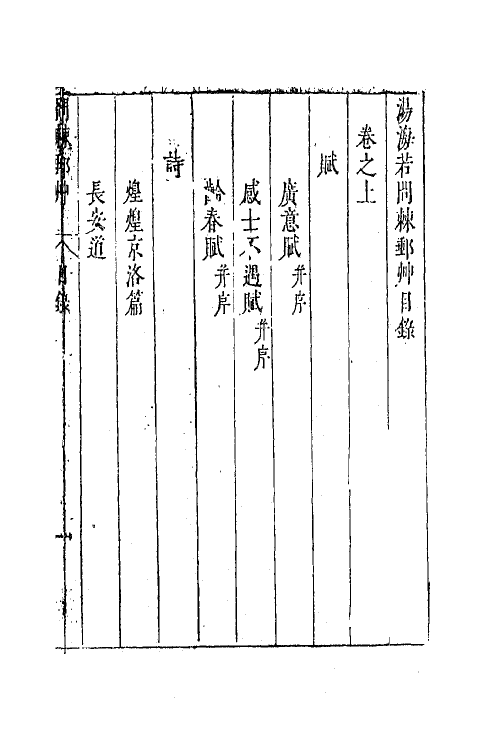 湯海若問棘郵艸目錄
卷之上
賦
廣意賦 并序
感士不遇賦 并序
齡春賦 并序
詩
煌煌京洛篇
長安道
問棘郵艸 目錄 一